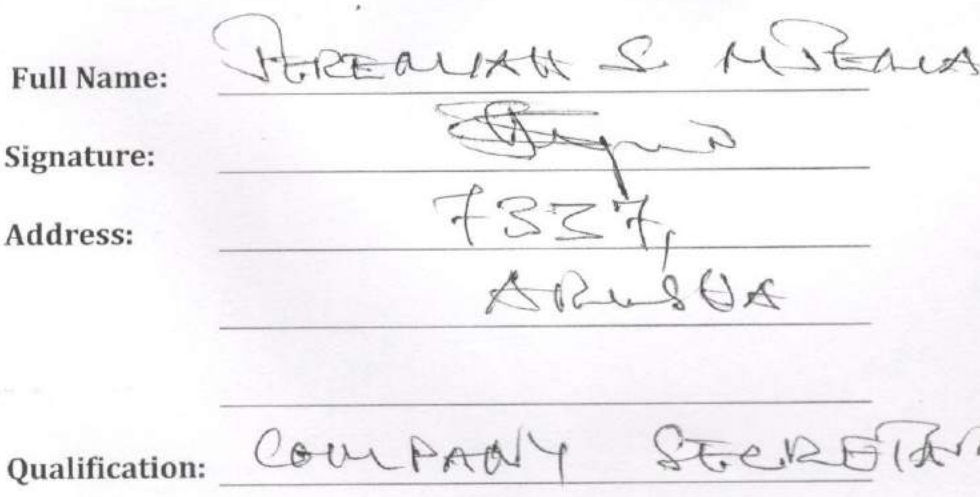 Full Name: JEREMIAH S. MJEMA
Signature:
Address: 7337,
ARUSHA
Qualification: COMPANY SECRETAR